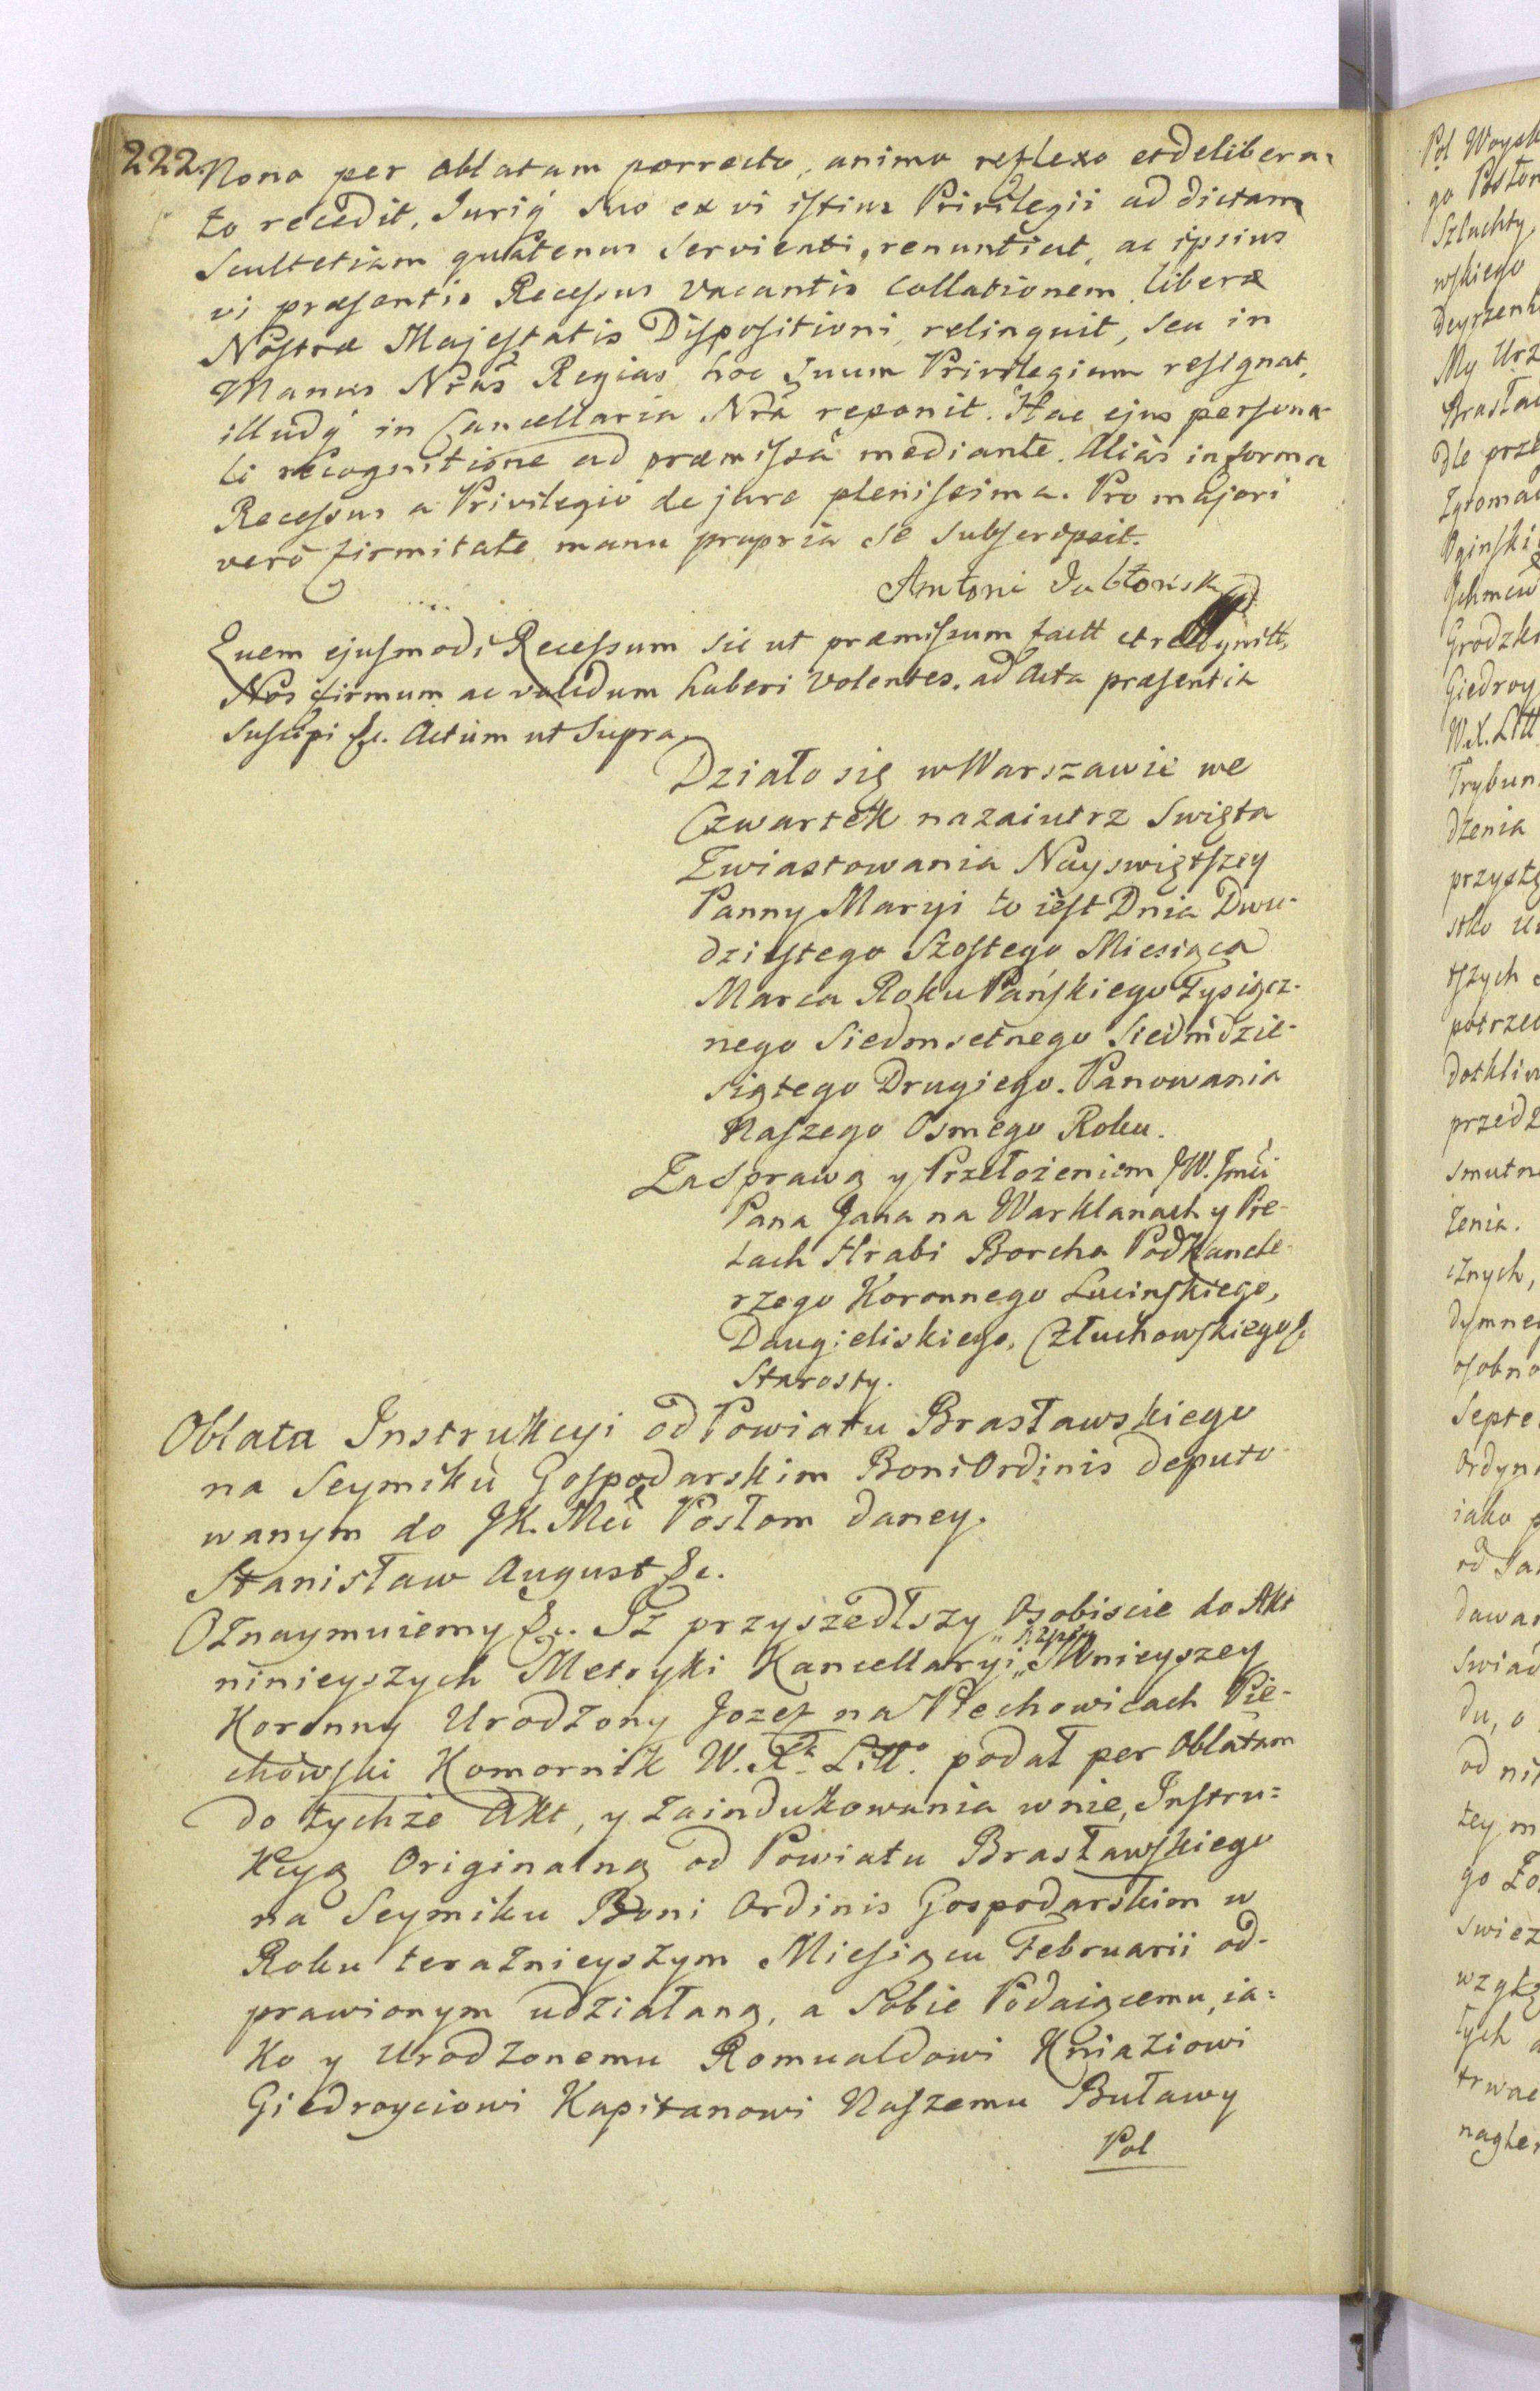 222.
Nono per oblatam porrecto, animo reflexo et delibera=
to recedit, Juriq́ suo ex vi istius Privilegii ad dictam
Scultetiam quatenus servienti, renuntiat, ac ipsius
vi præsentis Recessus vacantis Collationem liberæ
Nostræ Majestatis Dispositioni, relinquit, seu in
Manus Nr̃as Regias hoc suum Privilegium resignat,
illudq́ in Cancellaria Nr̃a reponit. Hac ejus persona-
li recognitione ad præmissa mediante. Aliàs in forma
Recessus a Privilegio de jure plenissima. Pro majori
verò firmitate manu propria se subscripsit.
Antoni Jabłonski
Quem ejusmodi Recessum sic ut præmissum factt et recognitt,
Nos firmum ac validum haberi volentes, ad Acta præsentia
suscipi &c. Actum ut Supra.
Działo się w Warszawie we
Czwartek nazaiutrz Swięta
Zwiastowania Nayswiętszey
Panny Maryi to iest Dnia Dwu-
dziestego Szostego Miesiąca
Marca Roku Pańskiego Tysiącz-
nego Siedmsetnego Siedmdzie-
siątego Drugiego. Panowania
Naszego Osmego Roku.
Za Sprawą y Przełożeniem JW. Jmći
Pana Jana na Warklanach y Pre-
lach Hrabi Borcha Podkancle-
rzego Koronnego Lucinskiego,
Daugieliskiego, Człuchowskiego &
Starosty.
Oblata Instrukcyi od Powiatu Brasławskiego
na Seymiku Gospodarskim Boni Ordinis deputo-
wanym do JK. Mći Posłom daney.
Stanisław August &c.
Oznaymuiemy &c. Iż przyszedłszy Osobiscie do Akt
ninieyszych Metryki Kancellaryi Mnieyszey
Koronny Urodzony Jozef na Piechowicach Pie-
chowski Komornik W. X. Litt. podał per Oblatam
do tychże Akt, y zaindukowania w nie, Instru=
kcyą Originalną od Powiatu Brasławskiego
na Seymiku Boni Ordinis Gospodarskim w
Roku teraznieyszym Miesiącu Februarii od-
prawionym udziałaną, a sobie Podaiącemu, ia=
ko y Urodzonemu Romualdowi Kniaziowi
Giedroyciowi Kapitanowi Naszemu Buławy
Pol
Pol Woysk
Szlachty
wskiego
My Urz
Brasław
dle prze
Zgromad
Oginski
Grodzki
Giedroy
W. X. Litt
Trybun
dzenia
przystę
potrzeb
dotkliw
smutn
żenia.
cznych,
dymneg
osobno
Septe
Ordyn
iako p
dawan
swiad
du, o
od ni
tey m
tych
trwać